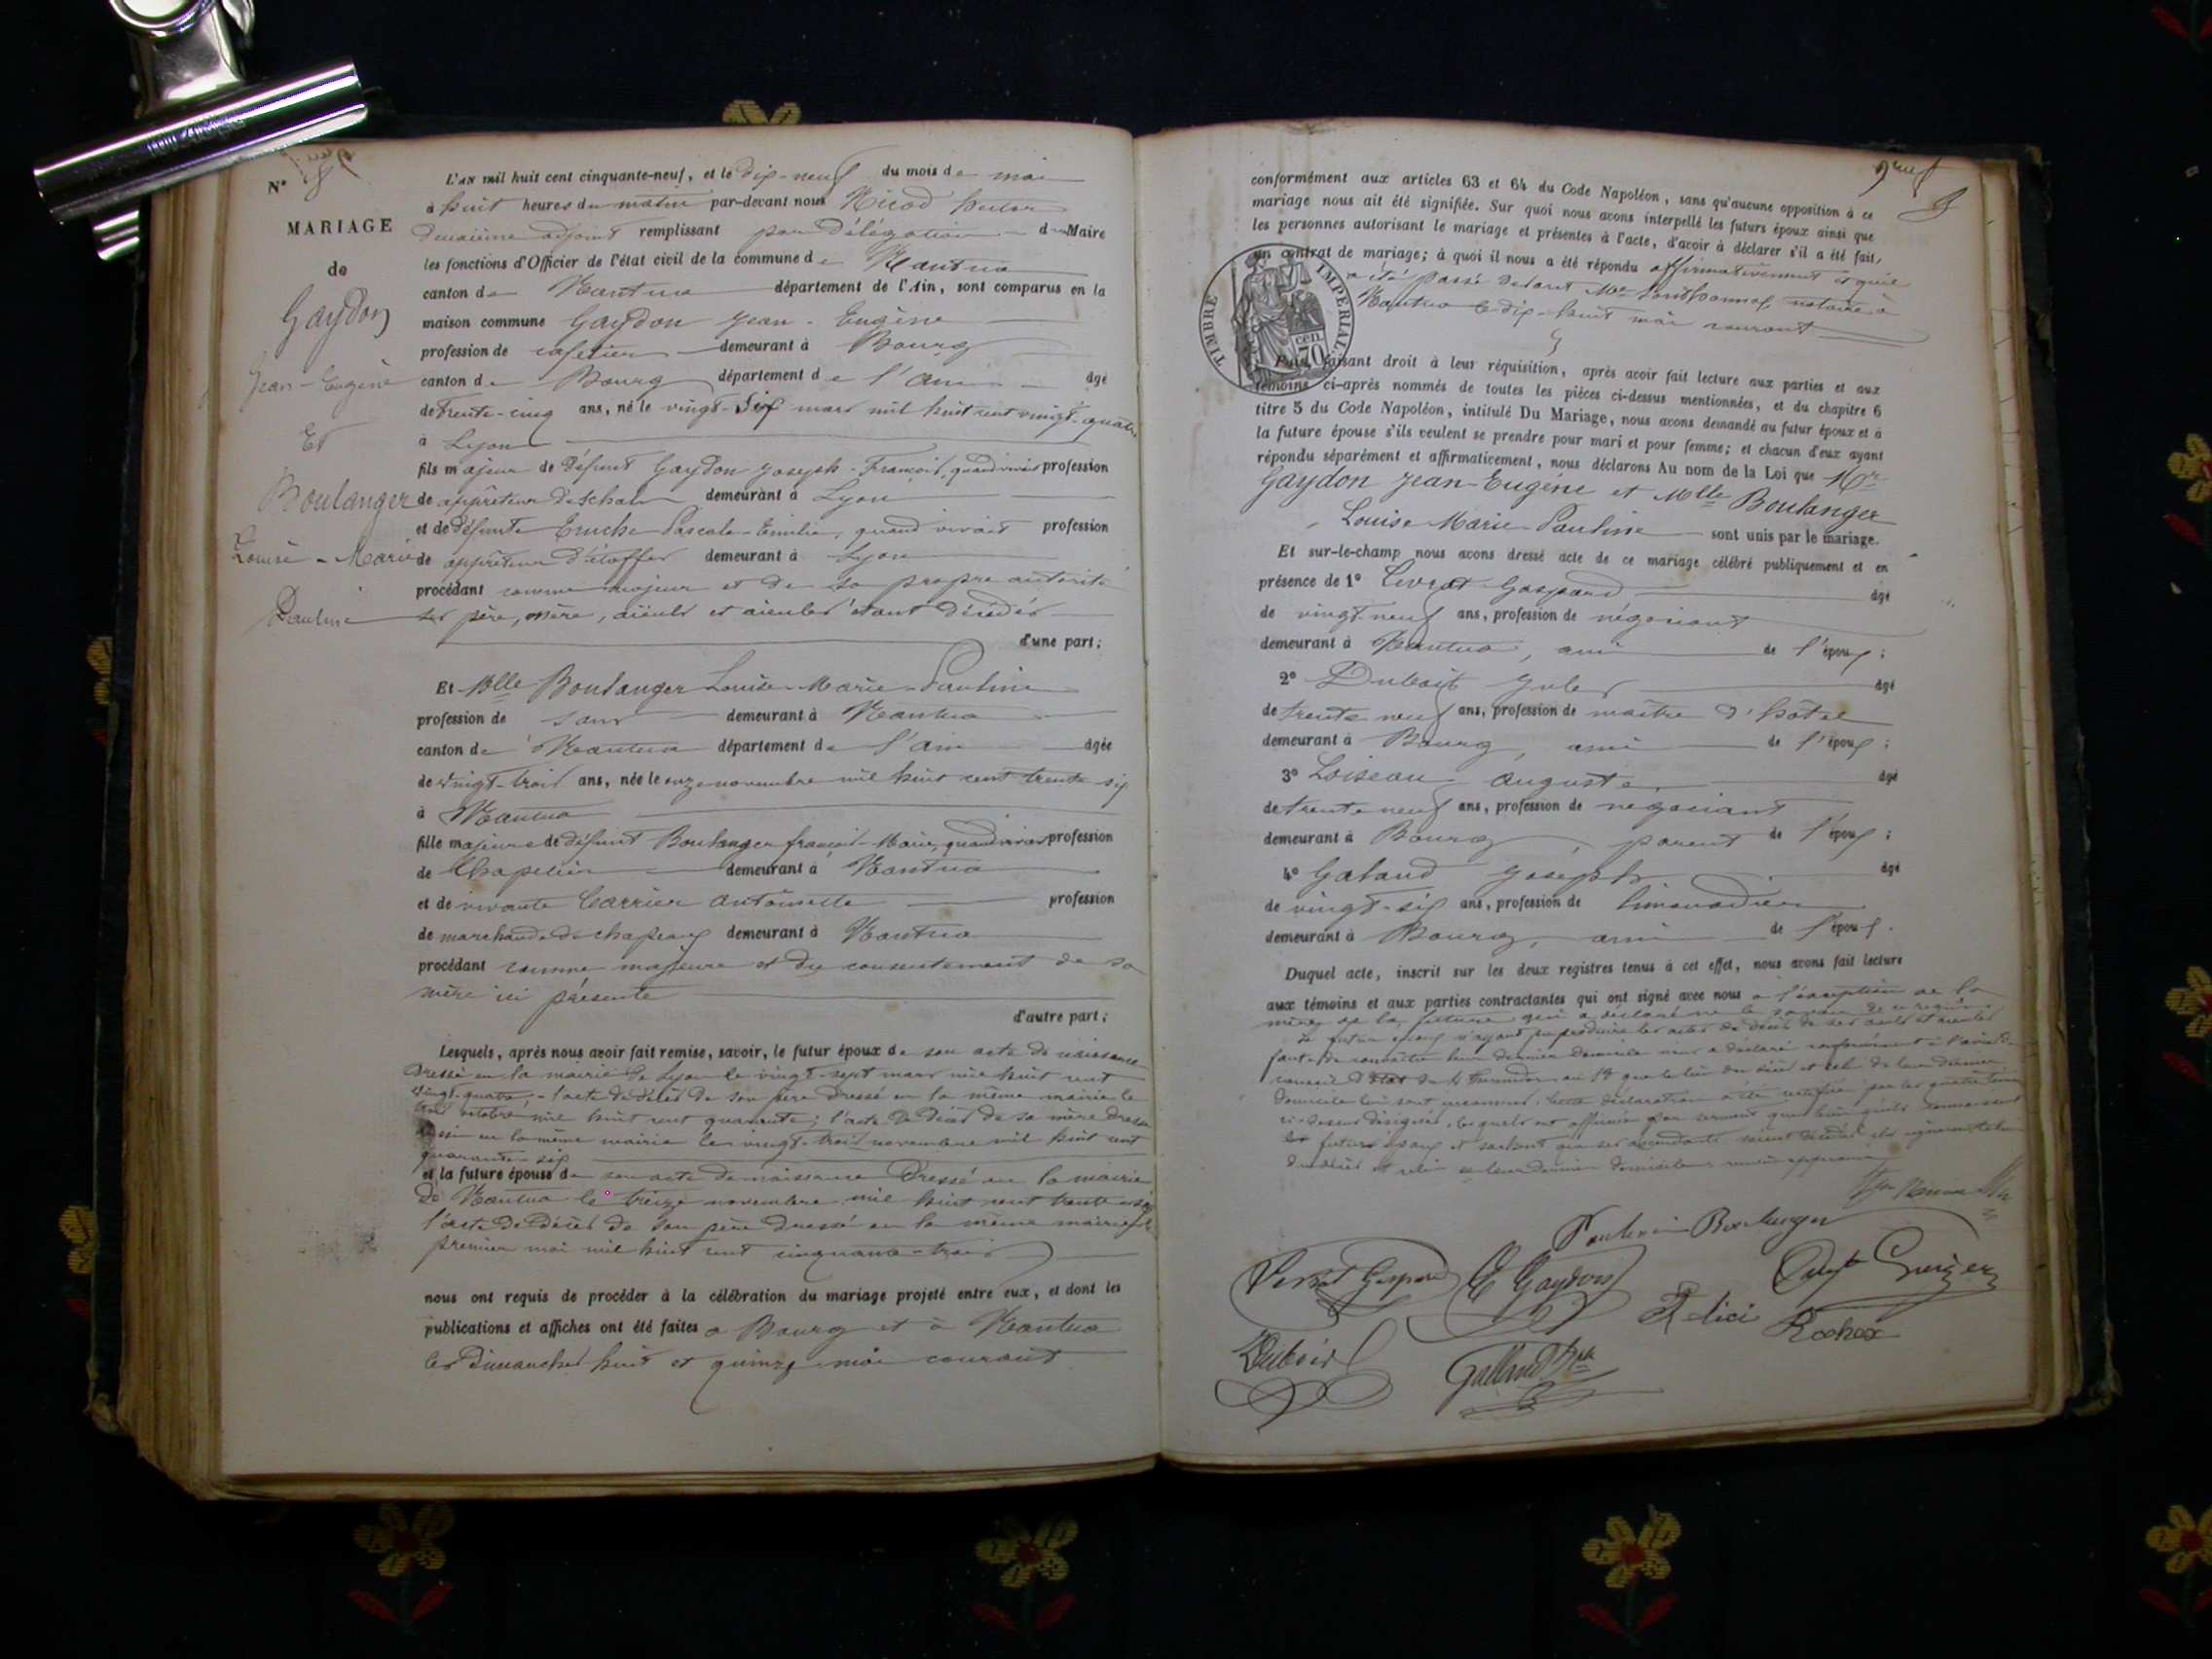 N°
MARIAGE
de
Gaydon
Jean-Eugène
Et
Boulanger
Louise-Marie
Pauline
L'AN mil huit cent cinquante-neuf, et le dix-neuf du mois de mai
à huit heures du matin par-devant nous Nicod
deuxième adjoint remplissant par Délégation du Maire
les fonctions d'Officier de l'état civil de la commune de Nantua
canton de Nantua département de l'Ain, sont comparus en la
maison commune Gaydon Jean-Eugène
profession de cafetier demeurant à Bourg
canton de Bourg département de l'Ain âgé
de trente-cinq ans, né le vingt-six mars mil huit cent vingt-quatre
à Lyon
fils majeur de défunt Gaydon Joseph-François, quand vivait profession
de apprêteur de schals demeurant à Lyon
et de défunte Pascale-Emilie, quand vivait profession
de apprêteur d'étoffes demeurant à Lyon
procédant comme majeur et de sa propre autorité
ses père, mère, aïeuls et aïeules étant décédés
d'une part;
Et Mlle Boulanger Louise-Marie-Pauline
profession de sans demeurant à Nantua
canton de Nantua département de l'Ain âgée
de vingt-trois ans, née le onze novembre mil huit cent trente six
à Nantua
fille majeure de défunt Boulanger françois-Marie, quand vivait profession
de Chapelier demeurant à Nantua
et de vivante Carrier Antoinette profession
de marchande de chapeaux demeurant à Nantua
procédant comme majeure et du consentement de sa
mère ici présente
d'autre part;
Lesquels, après nous avoir fait remise, savoir, le futur époux de son acte de naissance
Dressé en la mairie de Lyon le vingt-sept mars mil huit cent
vingt-quatre, l'acte de décès de son père dressé en la même mairie le
octobre mil huit cent quarante; l'acte de décès de sa mère dressé
aussi en la même mairie le vingt-trois novembre mil huit cent
quarante-six
et la future épouse de son acte de naissance Dressé en la mairie
de Nantua le treize novembre mil huit cent trente six
l'acte de décès de son père dressé en la même mairie le
premier mai mil huit cent cinquante-trois
nous ont requis de procéder à la célébration du mariage projeté entre eux, et dont les
publications et affiches ont été faites à Bourg et à Nantua
les Dimanches huit et quinze mai courant
9
conformément aux articles 63 et 64 du Code Napoléon, sans qu'aucune opposition à ce
mariage nous ait été signifiée. Sur quoi nous avons interpellé les futurs époux ainsi que
les personnes autorisant le mariage et présentes à l'acte, d'avoir à déclarer s'il a été fait,
un contrat de mariage; à quoi il nous a été répondu affirmativement et qu'il
a été passé devant Me notaire à
Nantua le dix-huit mai courant
TIMBRE IMPERIAL
70 cen.
Puis, faisant droit à leur réquisition, après avoir fait lecture aux parties et aux
témoins ci-après nommés de toutes les pièces ci-dessus mentionnées, et du chapitre 6
titre 5 du Code Napoléon, intitulé Du Mariage, nous avons demandé au futur époux et à
la future épouse s'ils veulent se prendre pour mari et pour femme; et chacun d'eux ayant
répondu séparément et affirmativement, nous déclarons Au nom de la Loi que Mr
Gaydon Jean-Eugène et Mlle Boulanger
Louise-Marie-Pauline sont unis par le mariage.
Et sur-le-champ nous avons dressé acte de ce mariage célébré publiquement et en
présence de 1° Gaspard âgé
de vingt-neuf ans, profession de négociant
demeurant à Nantua, ami de l'époux;
2° Dubois Jules âgé
de trente neuf ans, profession de maître d'hôtel
demeurant à Bourg, ami de l'époux;
3° Loiseau Auguste, âgé
de trente neuf ans, profession de négociant
demeurant à Bourg, parent de l'époux;
4° Galand Joseph âgé
de vingt-six ans, profession de limonadier
demeurant à Bourg, ami de l'époux.
Duquel acte, inscrit sur les deux registres tenus à cet effet, nous avons fait lecture
aux témoins et aux parties contractantes qui ont signé avec nous à l'exception de la
mère de la future qui a déclaré ne le savoir de ce requise
Le futur époux n'ayant pu produire les actes de décès de ses aïeuls et aïeules
faute de connaître leur dernier domicile nous a déclaré conformément à l'avis du
conseil d'état du 4 thermidor an 13 que le lieu du décès et celui de leur dernier
domicile lui sont inconnus. Cette déclaration a été certifiée par les quatre témoins
ci-dessus désignés, lesquels ont affirmé par serment que bien qu'ils connaissent
le futur époux
Pauline Boulanger
Gaspard
E Gaydon
Felici
Rochex
Dubois
Galland